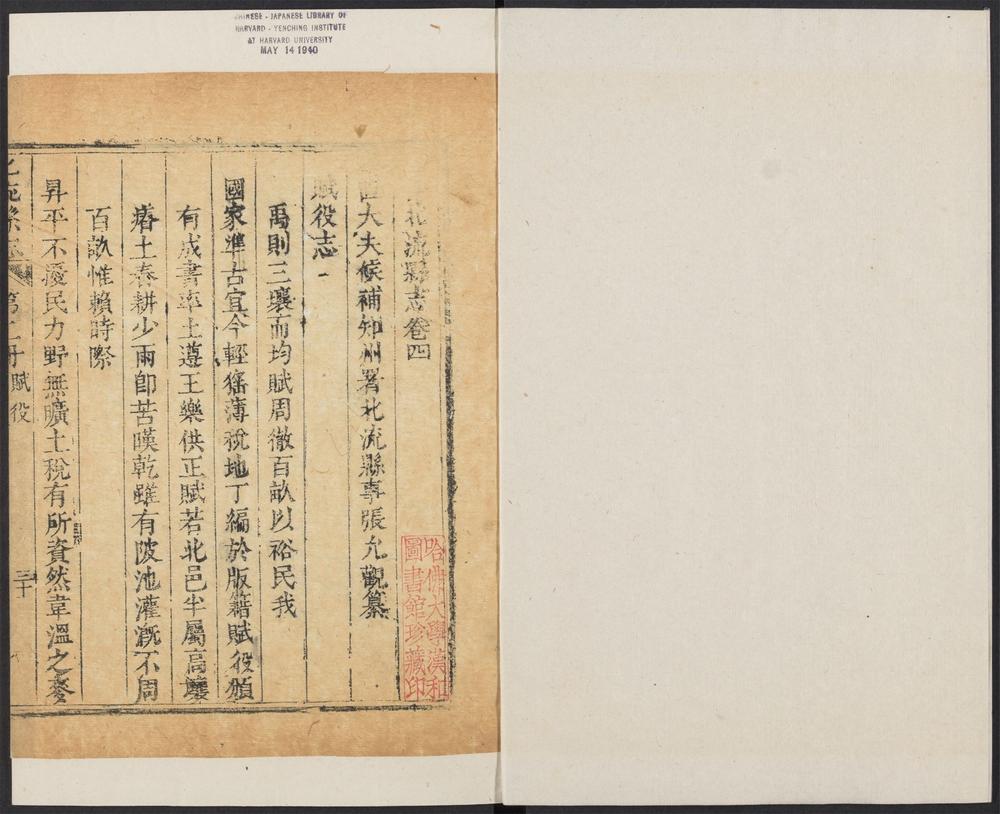 CHINESE - JAPANESE LIBRARY OF
HARVARD - YENCHING INSTITUTE
AT HARVARD UNIVERSITY
MAY 14 1940
北流縣志卷四
大夫候補知州署北流縣事張允觀纂
賦役志
禹則三壤而均賦周徹百畝以裕民我
國家準古宜今輕徭薄稅地丁編於版籍賦役頒
有成書率土遵王樂供正賦若北邑半屬高壤
瘠土春耕少雨即苦暵乾雖有陂池灌溉不周
百畝惟賴時際
昇平不憂民力野無曠土稅有所資然韋溫之麥
賦役
三十
哈佛大學漢和
圖書館珍藏印